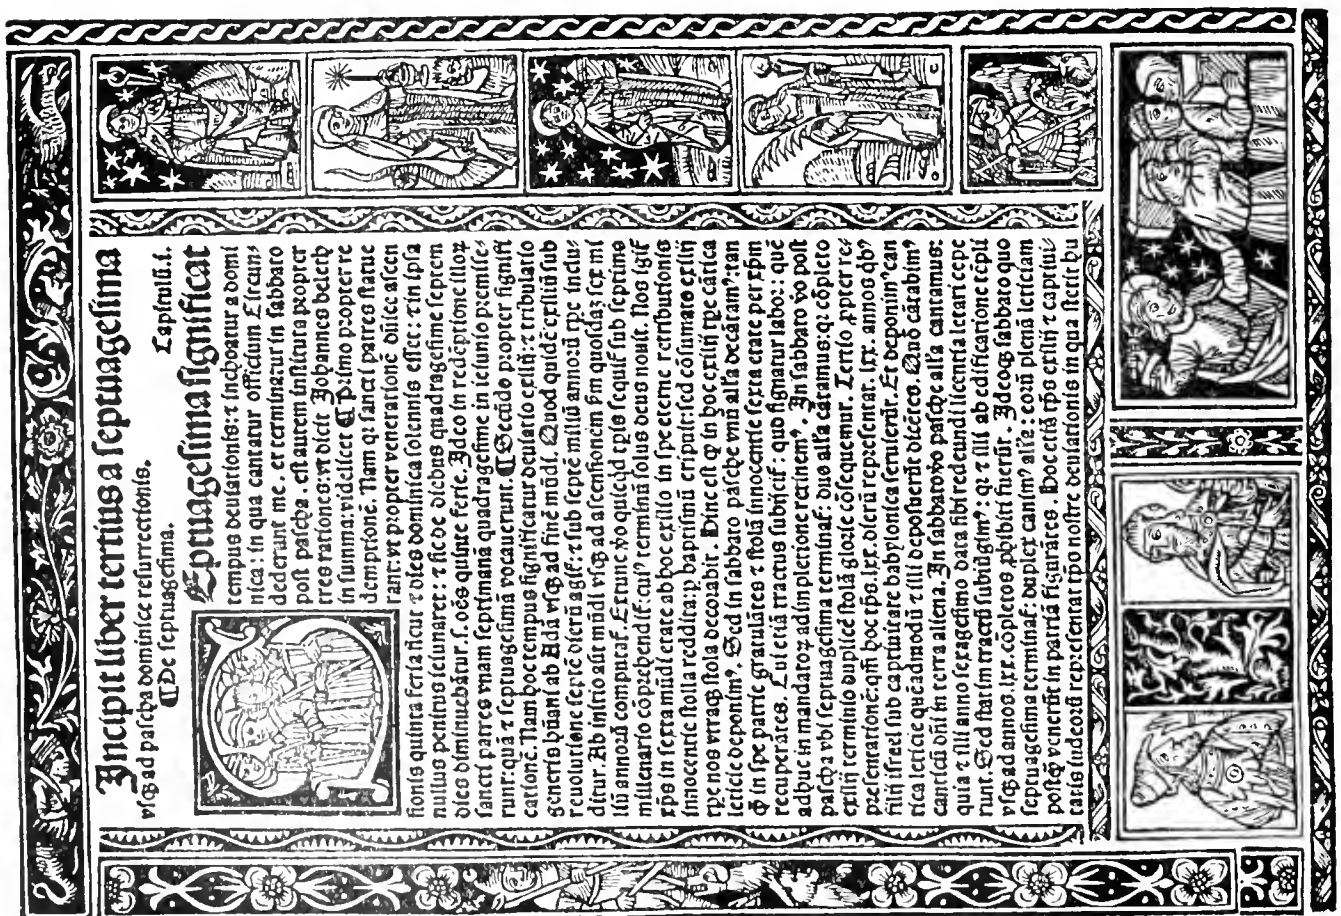 Incipit liber tertius a septuagesima
vsqꝫ ad pascha dominice resurrectionis.
¶De septuagesima. Capitulū.i.
SEptuagesima significat
tempus deuiationis: ⁊ inchoatur a domi
nica: in qua cantatur officium Circun-
dederunt me. et terminatur in sabbato
post pascha. est autem institura propter
tres rationes: vt dicit Johannes beleth
in summa: videlicet ¶Primo propter re
demptionē. Nam qꝫ sancti patres statue
rant: vt propter venerationē dn̄ice ascen
sionis quinta feria sicut ⁊ dies dominica solennis esset: ⁊ in ipsa
nullus penitus ieiunaret: ⁊ sic de diebus quadragesime septem
dies diminuebātur. s. oēs quinte ferie. Ideo in redēptione illoꝝ
sancti patres vnam septimanā quadragesime in ieiunio premise-
runt: quā ⁊ septuagesimā vocauerunt. ¶Secūdo propter signifi
cationē. Nam hoc tempus significatur deuiatio exiliū: ⁊ tribulatio
generis hūani ab Adā vsqꝫ ad finē mūdi. Quod quidē exiliū sub
reuolutione septē dierū agit᷑: ⁊ sub septē miliū annorū tpe inclu-
ditur. Ab initio aūt mūdi vsqꝫ ad ascensionem fm quosdaꝫ sex mi
lia annorū computat᷑. Extunc vo quicqd tpis sequit᷑ sub septimo
millenario cōprehendit᷑: cuiꝰ terminū solus deus nouit. Nos igit᷑
xps in sexta mūdi etate ab hoc exilio in spe eterne retributionis
innocentie stolla reddita: p baptismū eripuit: sed cōsumato exilio
tpe nos vtraqꝫ stola decorabit. Hinc est ꝙ in hoc exilij tpe cātica
leticie deponimꝰ. Sed in sabbato pasche vnū alla decātamꝰ: tan
ꝙ in spe patrie gratulātes ⁊ stolā innocentie sexta etate per xp̄m
recuperātes. Cui etiā tractus subijcit᷑: quo signatur labor: quē
adhuc in mandatoꝝ adimpletione retinemꝰ. In sabbato vo post
pascha vbi septuagesima terminat᷑: duo alla cātamus: qꝫ cōpleto
exilij terminio duplicē stolā glorie cōsequemur. Tertio ꝓpter re-
presentationē: qm̄ hoc tps lxx. dierū representat. lxx. annos qbꝰ
filij israel sub captiuitate babylonica seruierūt. Et deponimꝰ can
tica leticie quēadmodū ⁊ illi deposuerūt dicētes. Quō cātabimꝰ
canticū dn̄i in terra aliena. In sabbato vo pasche alla cantamus:
quia ⁊ illi anno sexagesimo data sibi redeundi licentia letari cepe
runt. Sed statim tractū subiūgimꝰ: qꝫ ⁊ illi ab edificatione tēpli
vsqꝫ ad annos. lxx. cōpletos ꝓhibiti fuerūt. Ideoqꝫ sabbato quo
septuagesima terminat᷑: duplex canimꝰ alla: eoꝝ plenā leticiam
postꝙ venerūt in patriā figurātes. Hoc etiā tps exilij ⁊ captiui-
tatis iudeoꝝ representat tpo nostre deuiationis in qua stetit hu